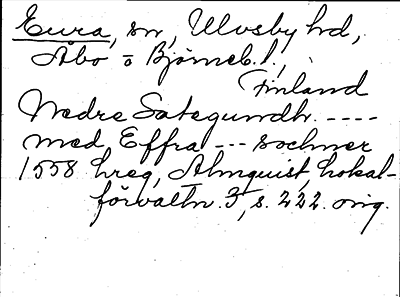 Eura, sn, Ulvsby hd,
Åbo o Björneb. l.,
Finland
Nedre Satagundh. ----
med Effra --- sochner
1558 hreg, Almquist, Lokal-
förvaltn. 3, s. 222. orig.